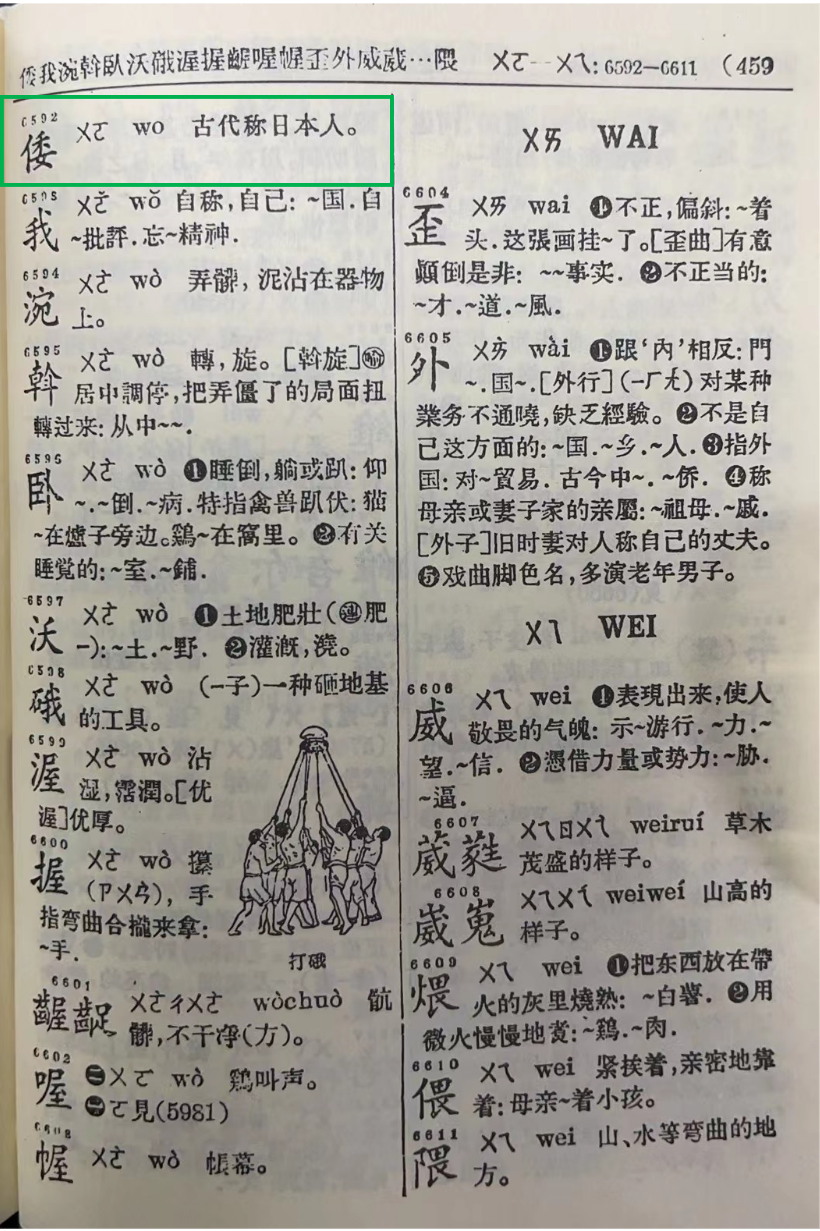 倭我涴斡臥沃硪渥握齷喔幄歪外威葳…隈 ㄨㄛ—ㄨㄟ: 6592—6611 (459
6592
倭 ㄨㄛ wo 古代称日本人。
我 ㄨㄛˇ wǒ 自称,自己: ~国.自
~批評.忘~精神.
6594
涴 ㄨㄛˋ wò 弄髒, 泥沾在器物
上。
6595
斡 ㄨㄛˋ wò 轉, 旋。[斡旋]㊀喻
居中調停,把弄僵了的局面扭
轉过来: 从中~~.
卧 ㄨㄛˋ wò ❶睡倒,躺或趴: 仰
~.~倒.~病.特指禽兽趴伏: 猫
~在爐子旁边。鷄~在窩里。❷有关
睡觉的:~室.~鋪.
6597
沃 ㄨㄛˋ wò ❶土地肥壯(連肥
—):~土.~野. ❷灌漑,澆。
6598
硪 ㄨㄛˋ wò (—子)一种砸地基
的工具。
6599
渥 ㄨㄛˋ wò 沾
湿, 霑潤。[优
渥]优厚。
6600
握 ㄨㄛˋ wò 攥
(ㄗㄨㄢˋ), 手
指弯曲合攏来拿:
~手.
打硪
6601
齷齪 ㄨㄛˋㄔㄨㄛˋ wòchuò 骯
髒,不干凈(方)。
6602
喔 ㊀ㄨㄛ wò 鷄叫声。
㊁ㄛ見(5981)
幄 ㄨㄛˋ wò 帳幕。
ㄨㄞ WAI
6604
歪 ㄨㄞ wai ❶不正,偏斜:~着
头.这張画挂~了。[歪曲]有意
顚倒是非: ~~事实. ❷不正当的:
~才.~道.~風.
6605
外 ㄨㄞˋ wài ❶跟‘內’相反: 門
~.国~.[外行](—ㄏㄤˊ)对某种
業务不通曉,缺乏經驗。❷不是自
己这方面的:~国.~乡.~人.❸指外
国: 对~貿易. 古今中~.~侨. ❹称
母亲或妻子家的亲屬:~祖母.~戚.
[外子]旧时妻对人称自己的丈夫。
❺戏曲脚色名,多演老年男子。
ㄨㄟ WEI
6606
威 ㄨㄟ wei ❶表現出来,使人
敬畏的气魄: 示~游行.~力.~
望.~信. ❷憑借力量或势力:~胁.
~逼.
6607
葳蕤 ㄨㄟㄖㄨㄟˊ weiruí 草木
茂盛的样子。
6608
崴嵬 ㄨㄟㄨㄟˊ weiweí 山高的
样子。
6609
煨 ㄨㄟ wei ❶把东西放在帶
火的灰里燒熟: ~白薯. ❷用
微火慢慢地煮:~鷄.~肉.
6610
偎 ㄨㄟ wei 紧挨着,亲密地靠
着:母亲~着小孩。
6611
隈 ㄨㄟ wei 山、水等弯曲的地
方。